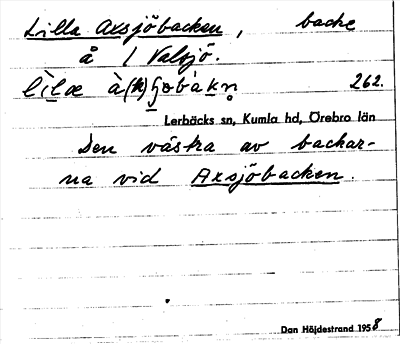 Lilla Axsjöbacken, backe
å 1 Valsjö.
262.
Lerbäcks sn, Kumla hd, Örebro län
Den västra av backar-
na vid Axsjöbacken.
Dan Höjdestrand 1958